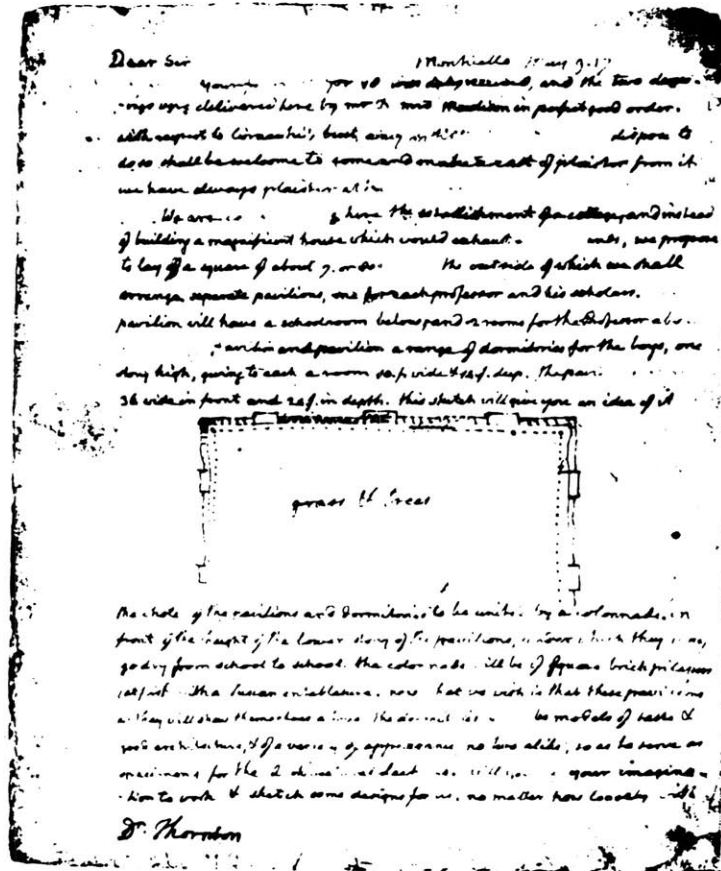 Dear Sir Monticello May 9. 17
your was duly received, and the two
delivered here by mr & mrs Madison in perfect good order.
with respect to Ciracchi's bust, any dispose to
do so shall be welcome to come and make a cast of plaister from it
we have always plaister
We are here the establishment of a college, and instead
of building a magnificent house which would exhaust we propose
to lay off a square of about 7. or 8 the outside of which we shall
arrange separate pavilions, one for each professor and his scholars.
pavilion will have a schoolroom below, and 2 rooms for the Professor
and pavilion a range of dormitories for the boys, one
story high, giving to each a room wide & deep. the
36 wide in front and 24 f. in depth. this sketch will give you an idea of it
grass & trees
the whole of the pavilions and dormitories to be united by a colonnade in
front of the height of the lower story of the pavilions, under which they
go dry from school to school. the colonnade will be of square brick pilasters
with a Tuscan entablature. now what we wish is that these pavilions
as they will show themselves above the be models of taste &
good architecture, & of a variety of appearance, no two alike, so as to serve as
specimens for the your imagina-
-tion to work & sketch some designs for us, no matter how loosely with
Dr. Thornton